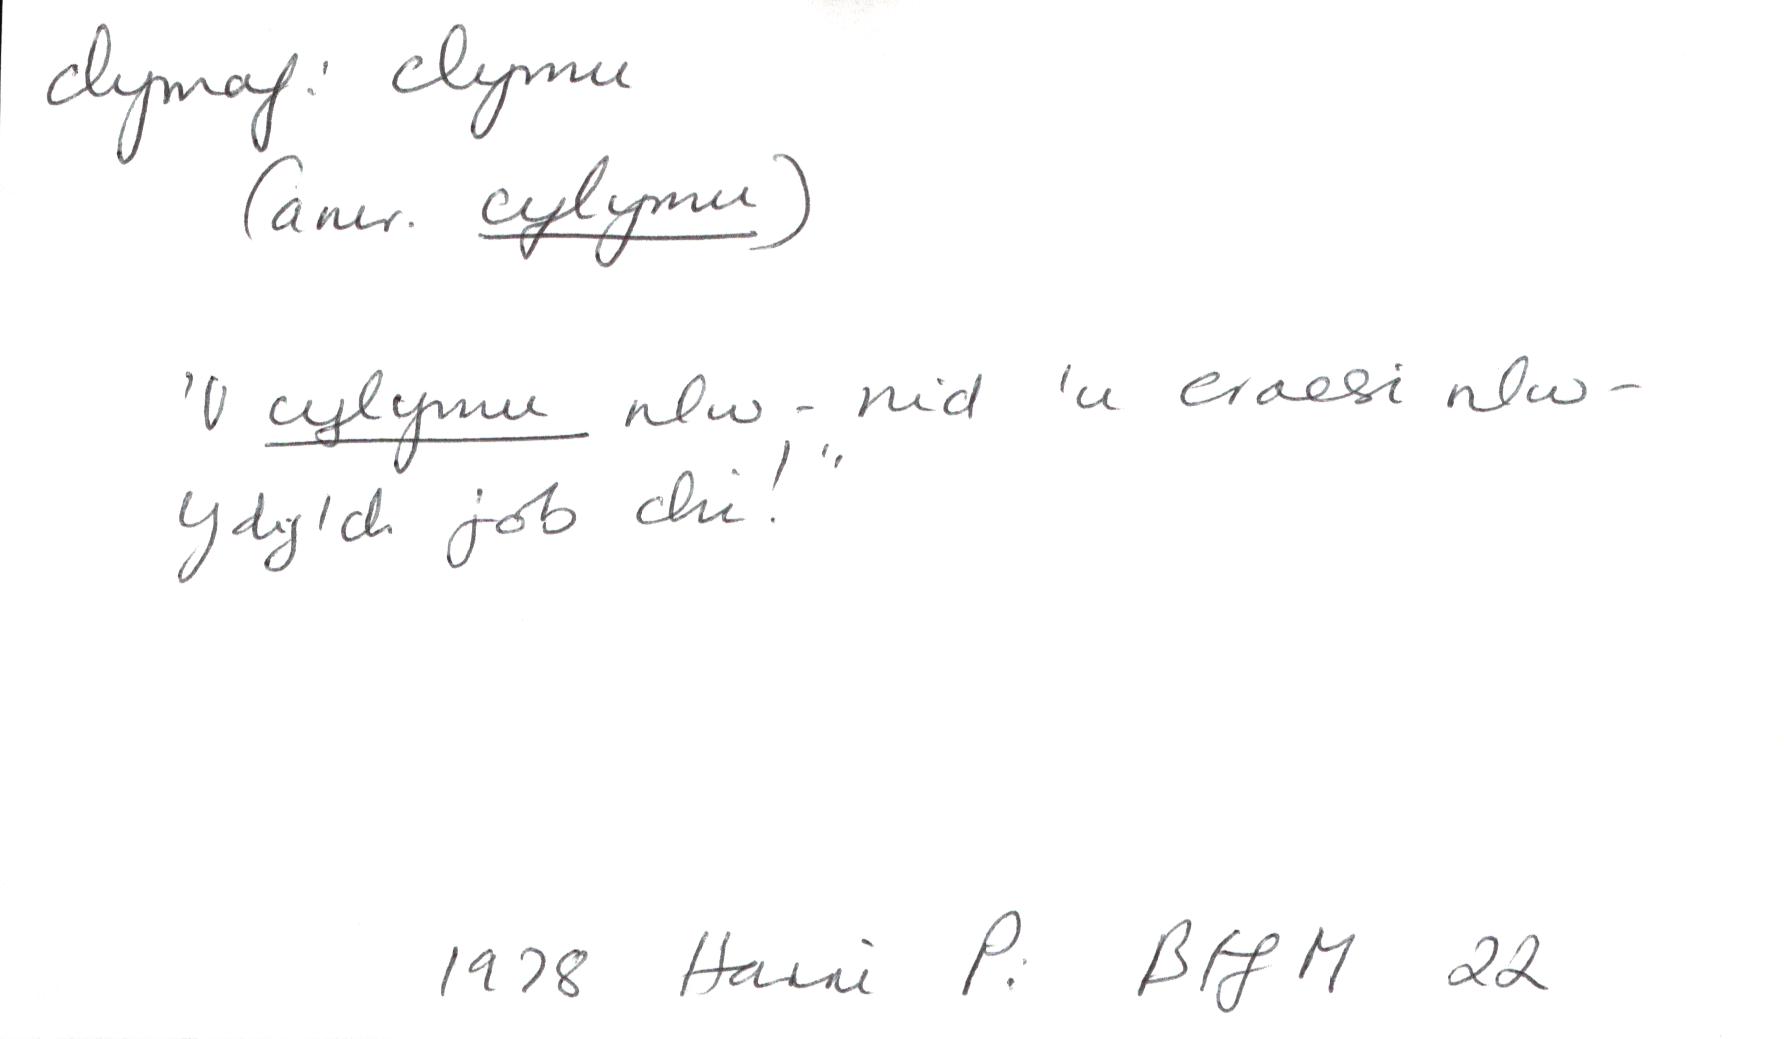 clymaf: clymu
(amr. cylymu)
'U cylymu nhw - nid 'u croesi nhw -
ydy'ch job chi!"
1978 Harri P: 22